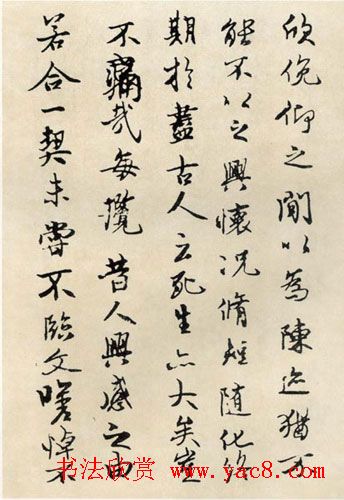 欣俛仰之間以為陳迹猶不
能不以之興懷况脩短隨化終
期於盡古人云死生亦大矣豈
不痛哉每攬昔人興感之由
若合一契未嘗不臨文嗟悼不
书法欣赏 www.yac8.com